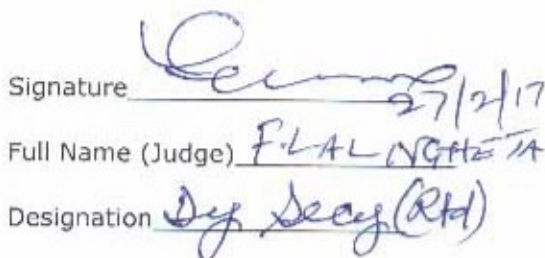 Signature 27/2/17
Full Name (Judge) F. LAL NGHETA
Designation Dy Secy (Rtd)